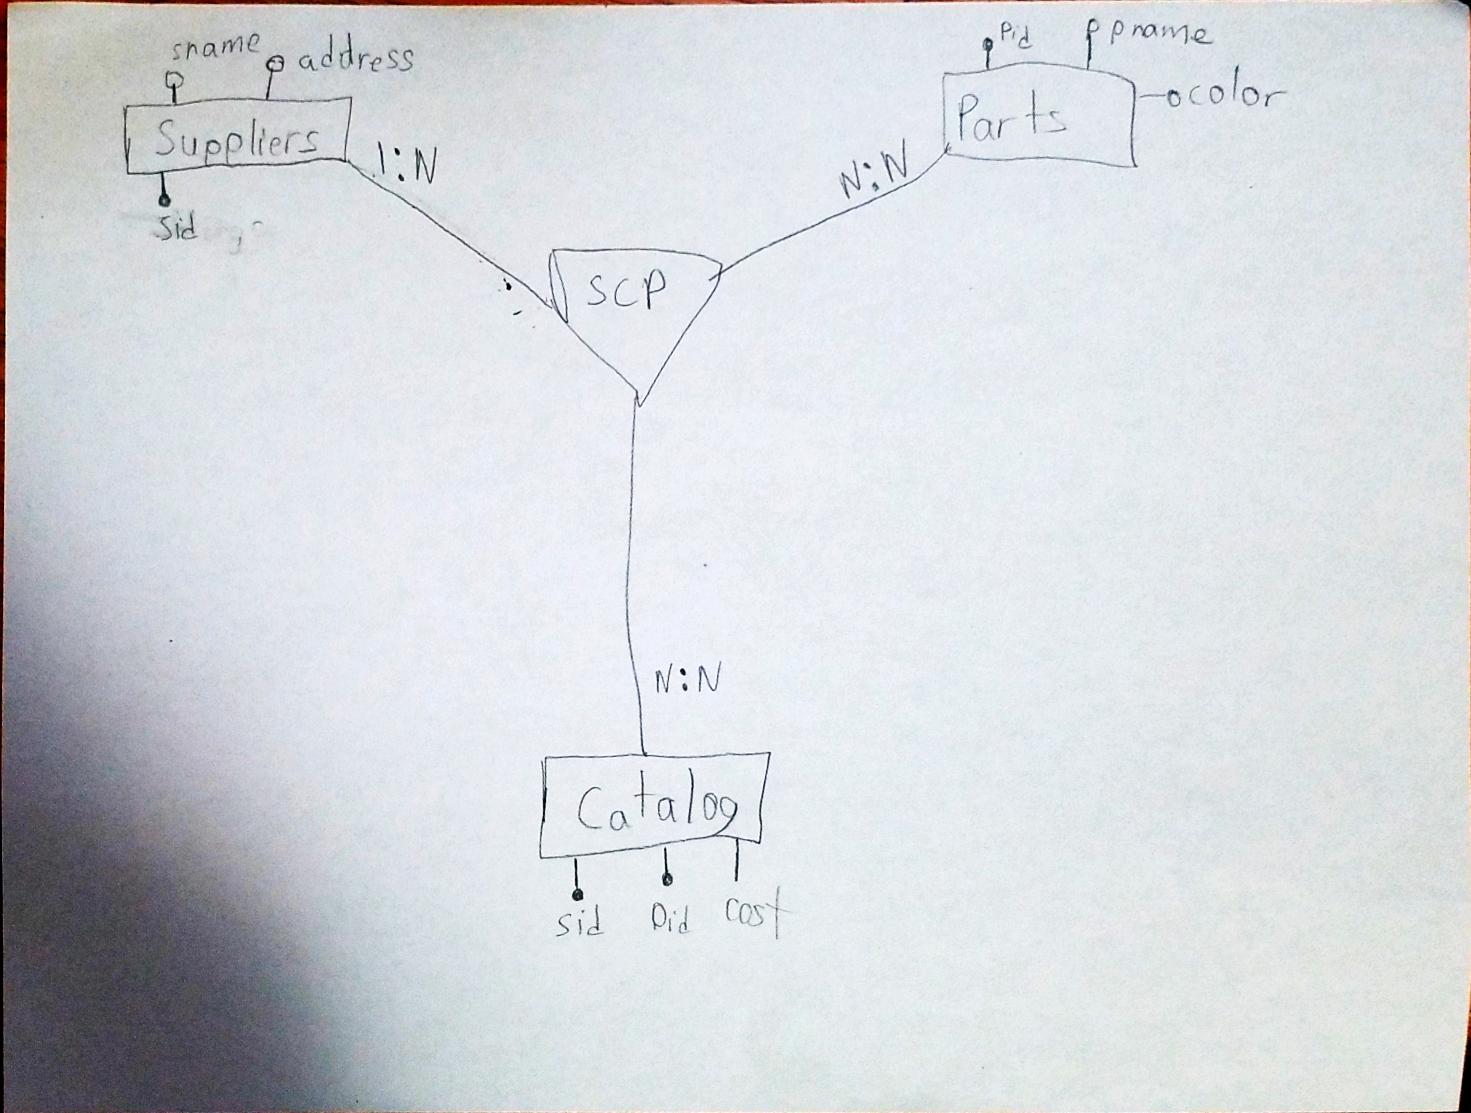 sname
address
Suppliers
sid
1:N
Pid
pname
Parts
color
N:N
SCP
N:N
Catalog
sid
Pid
cost